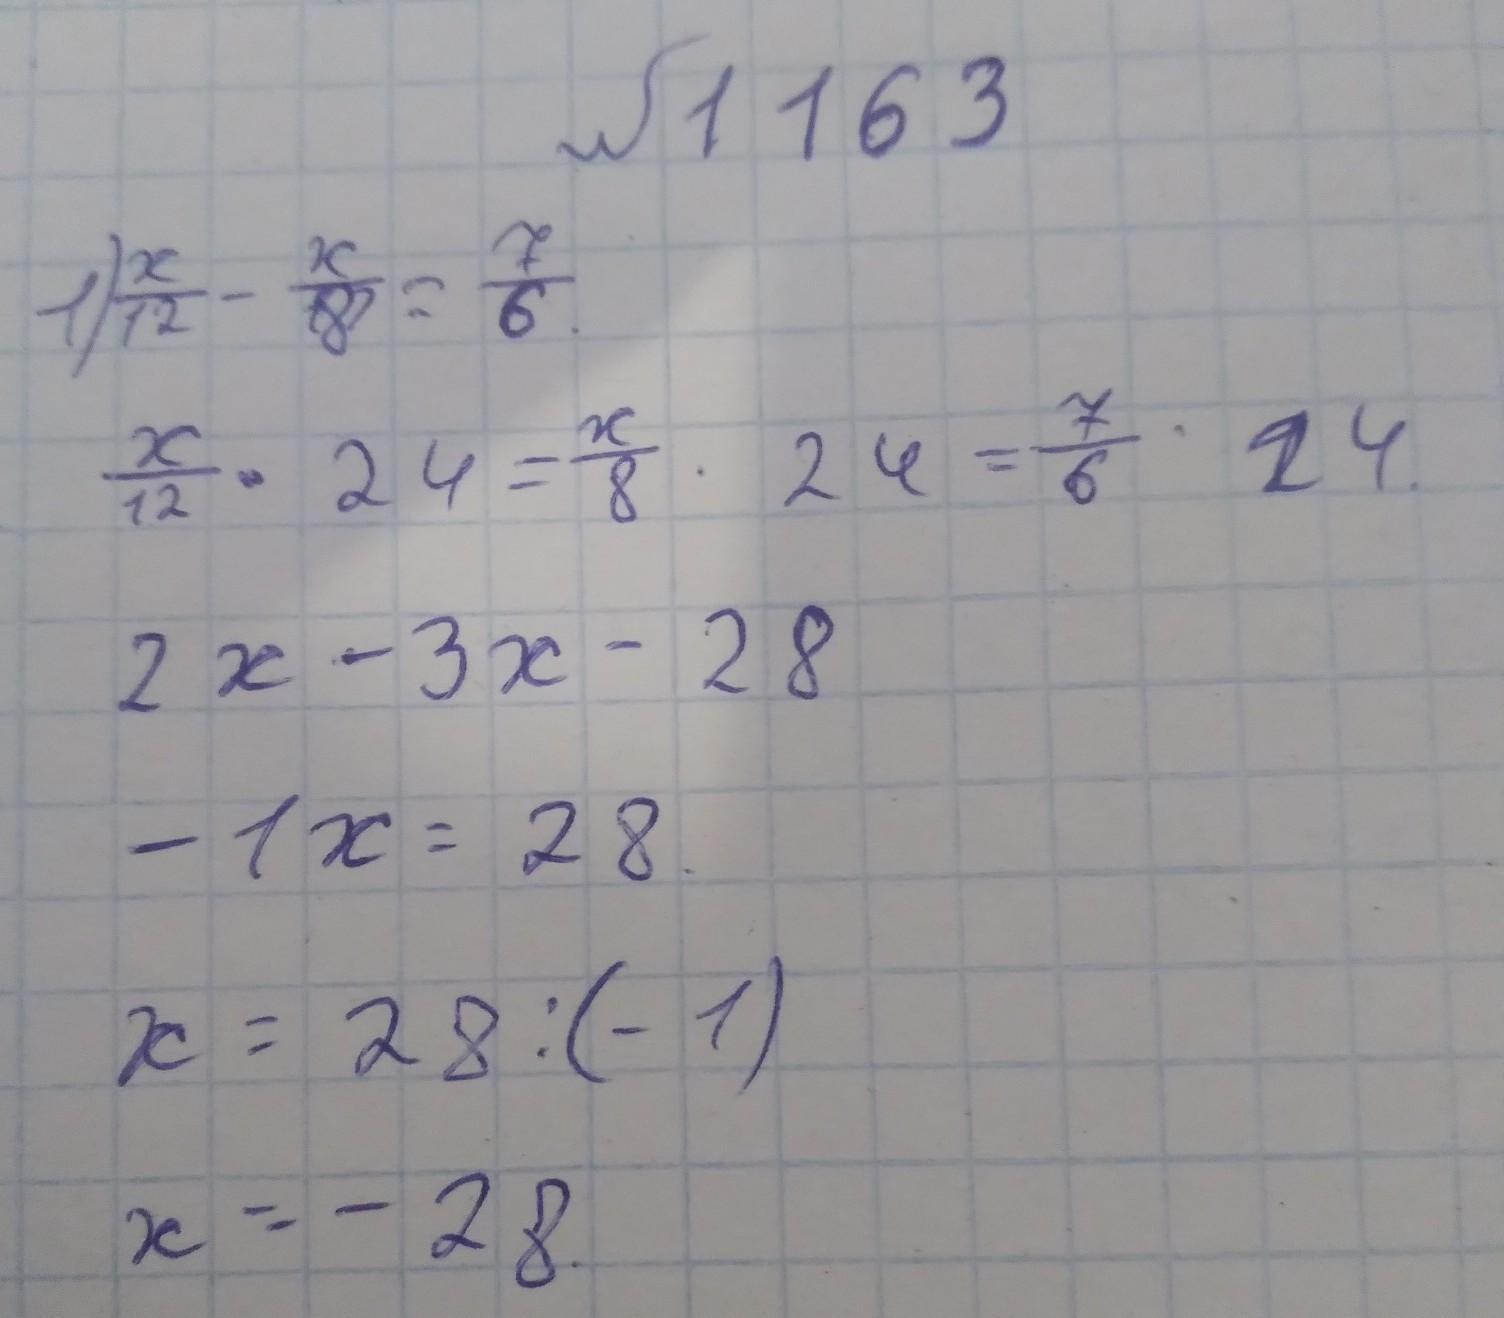 №1163
1) x/12 - x/8 = 7/6.
x/12 · 24 = x/8 · 24 = 7/6 · 24.
2x - 3x - 28
-1x = 28.
x = 28:(-1)
x = -28.